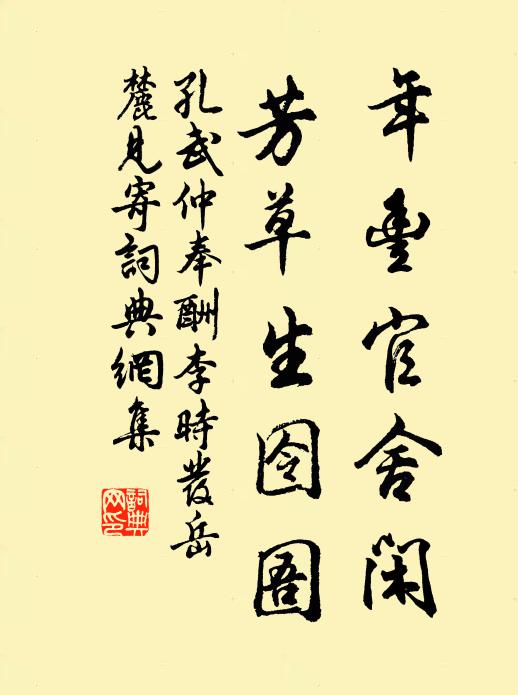 年豐官舍閑
芳草生囹圄
孔武仲奉酬李時發岳
麓見寄詞典網集
詞典
网印